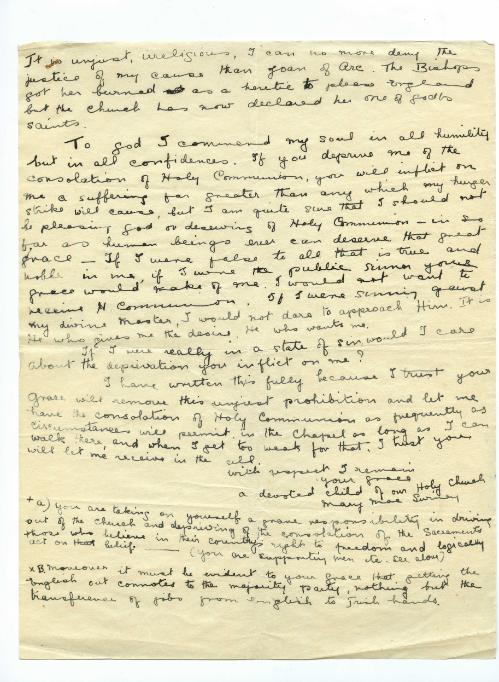 It is unjust, irreligious, I can no more deny the
justice of my cause than Joan of Arc. The Bishops
got her burned as a heretic to please England
but the Church has now declared her one of God's
saints.
To God I commend my soul in all humility
but in all confidences. If you deprive me of the
consolation of Holy Communion, you will inflict on
me a suffering far greater than any which my hunger
strike will cause, but I am quite sure that I should not
be pleasing God or deserving of Holy Communion – in so
far as human beings ever can deserve that great
grace – If I were false to all that is true and
noble in me, if I were the public sinner your
grace would make of me. I would not want to
receive H Communion. If I were sinning against
my divine Master, I would not dare to approach Him. It is
He who gives me the desire. He who wants me.
If I were really in a state of sin, would I care
about the deprivation you inflict on me?
I have written this fully because I trust your
Grace will remove this unjust prohibition and let me
have the consolation of Holy Communion as frequently as
circumstances will permit in the Chapel as long as I can
walk there, and when I get too weak for that, I trust you
will let me receive in the cell
with respect I remain
your grace
a devoted child of our Holy Church
Mary Mac Swiney
+ a) you are taking on yourself a grave responsibility in driving
out of the Church and depriving of the consolation of the Sacraments
those who believe in their country's right to freedom and logically
act on that belief. — (you are supporting men etc. see above)
x B moreover it must be evident to your Grace that getting the
English out connotes to the majority party, nothing but the
transference of jobs from English to Irish hands.